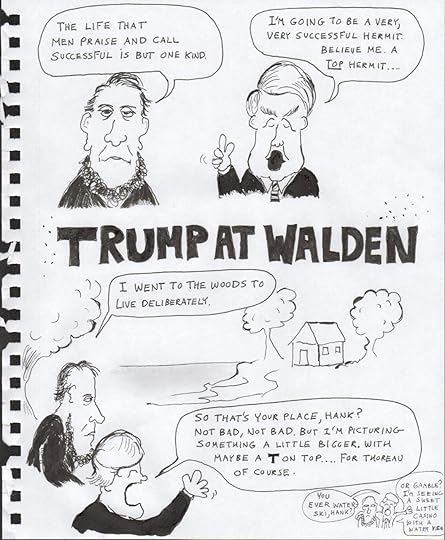 THE LIFE THAT
MEN PRAISE AND CALL
SUCCESSFUL IS BUT ONE KIND.
I'M GOING TO BE A VERY,
VERY SUCCESSFUL HERMIT.
BELIEVE ME. A
TOP HERMIT....
TRUMP AT WALDEN
I WENT TO THE WOODS TO
LIVE DELIBERATELY.
SO THAT'S YOUR PLACE, HANK?
NOT BAD, NOT BAD. BUT I'M PICTURING
SOMETHING A LITTLE BIGGER. WITH
MAYBE A T ON TOP.... FOR THOREAU
OF COURSE.
YOU
EVER WATER
SKI, HANK?
OR GAMBLE?
I'M SEEING
A SWEET
LITTLE
CASINO
WITH A
WATER